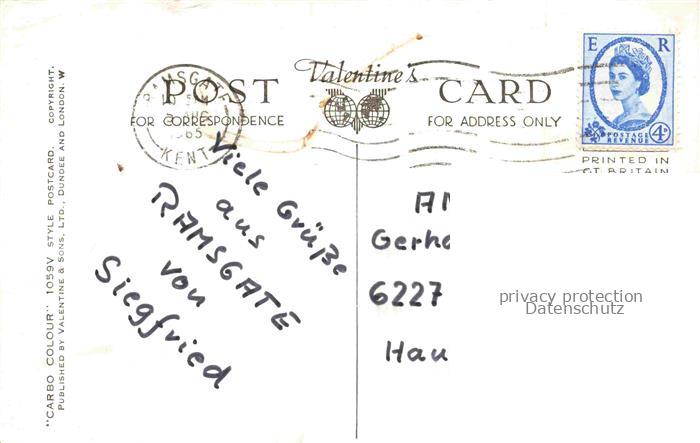 "CARBO COLOUR" 1059V STYLE POSTCARD. COPYRIGHT.
PUBLISHED BY VALENTINE & SONS, LTD., DUNDEE AND LONDON. W
POST Valentine's CARD
FOR CORRESPONDENCE
FOR ADDRESS ONLY
RAMSGATE
1965
KENT
E R
4D
POSTAGE
REVENUE
PRINTED IN
GT BRITAIN
Viele Grüße
aus
RAMSGATE
von
Siegfried
Gerh
6227
Hau
privacy protection
Datenschutz